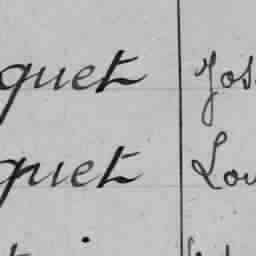 quet Jos
quet Lou